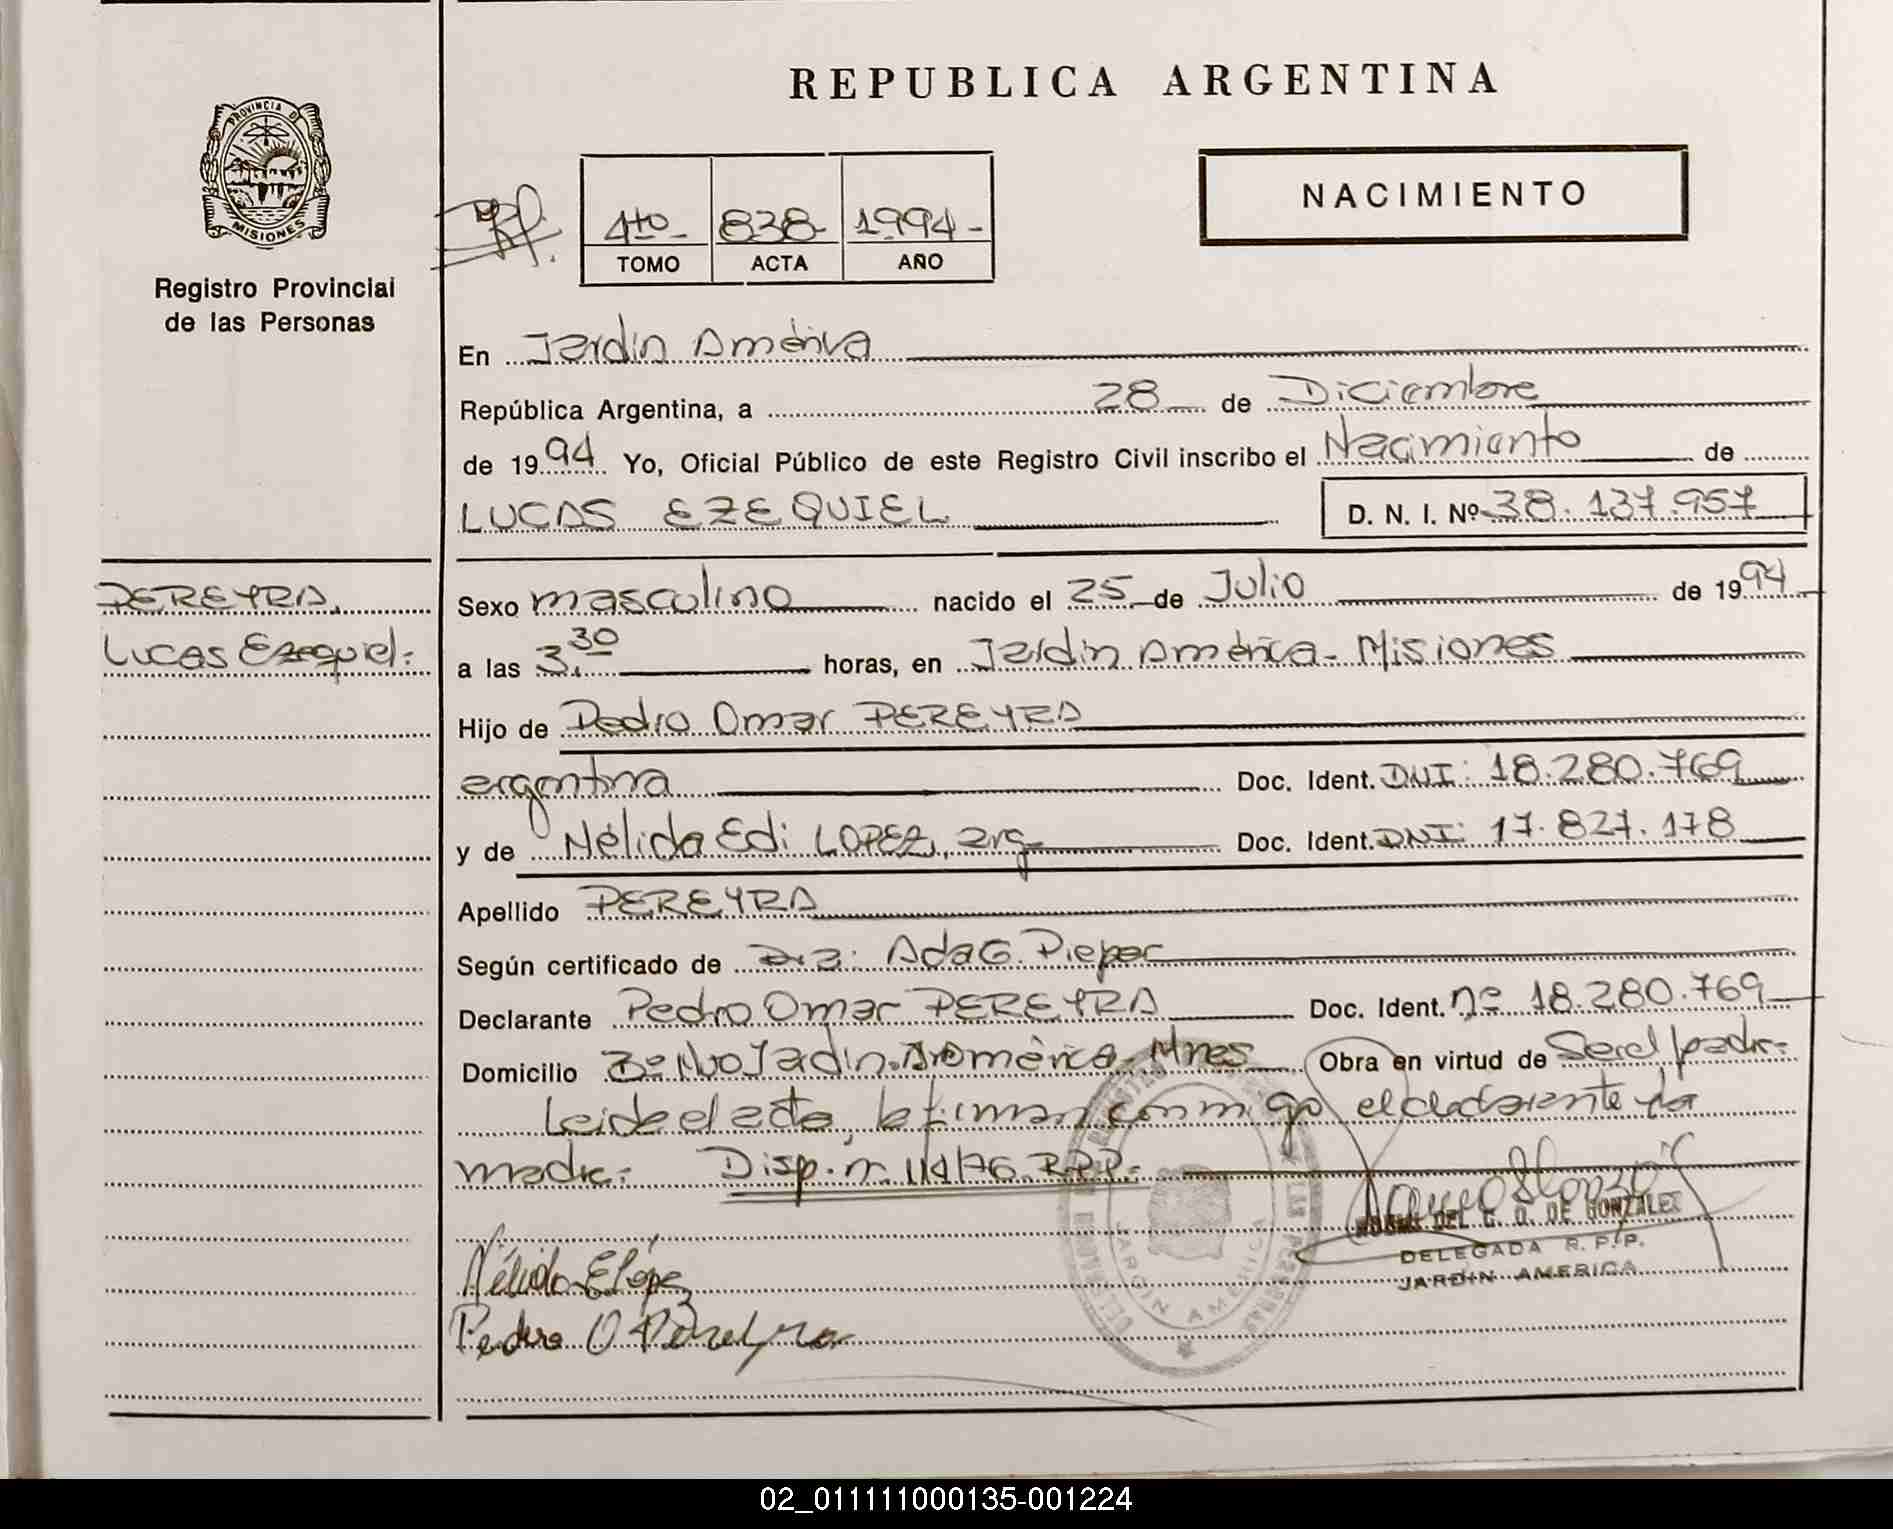 REPUBLICA ARGENTINA
PROVINCIA DE
MISIONES
Registro Provincial
de las Personas
4to- 838- 1994-
TOMO ACTA AÑO
NACIMIENTO
En Jardín América
República Argentina, a 28 de Diciembre
de 1994 Yo, Oficial Público de este Registro Civil inscribo el Nacimiento de
LUCAS EZEQUIEL D. N. I. Nº 38.137.957
PEREYRA,
Lucas Ezequiel:
Sexo masculino nacido el 25 de Julio de 1994
a las 3.30 horas, en Jardín América - Misiones
Hijo de Pedro Omar PEREYRA
argentina Doc. Ident. DNI: 18.280.769
y de Nélida Edi LOPEZ, arg Doc. Ident. DNI: 17.827.178
Apellido PEREYRA
Según certificado de Dra: Ada G. Pieper
Declarante Pedro Omar PEREYRA Doc. Ident. nº 18.280.769
Domicilio Bº Nvo Jardín América - Mnes Obra en virtud de Ser el padre:
Leída el acta, la firman conmigo el declarante y la
madre: Disp. n. 114/76. R.P.P.-
DEL C. D. DE GONZALEZ
DELEGADA R. P. P.
JARDIN AMERICA
JARDIN AMERICA
Nélida E López
Pedro O Pereyra
02_011111000135-001224